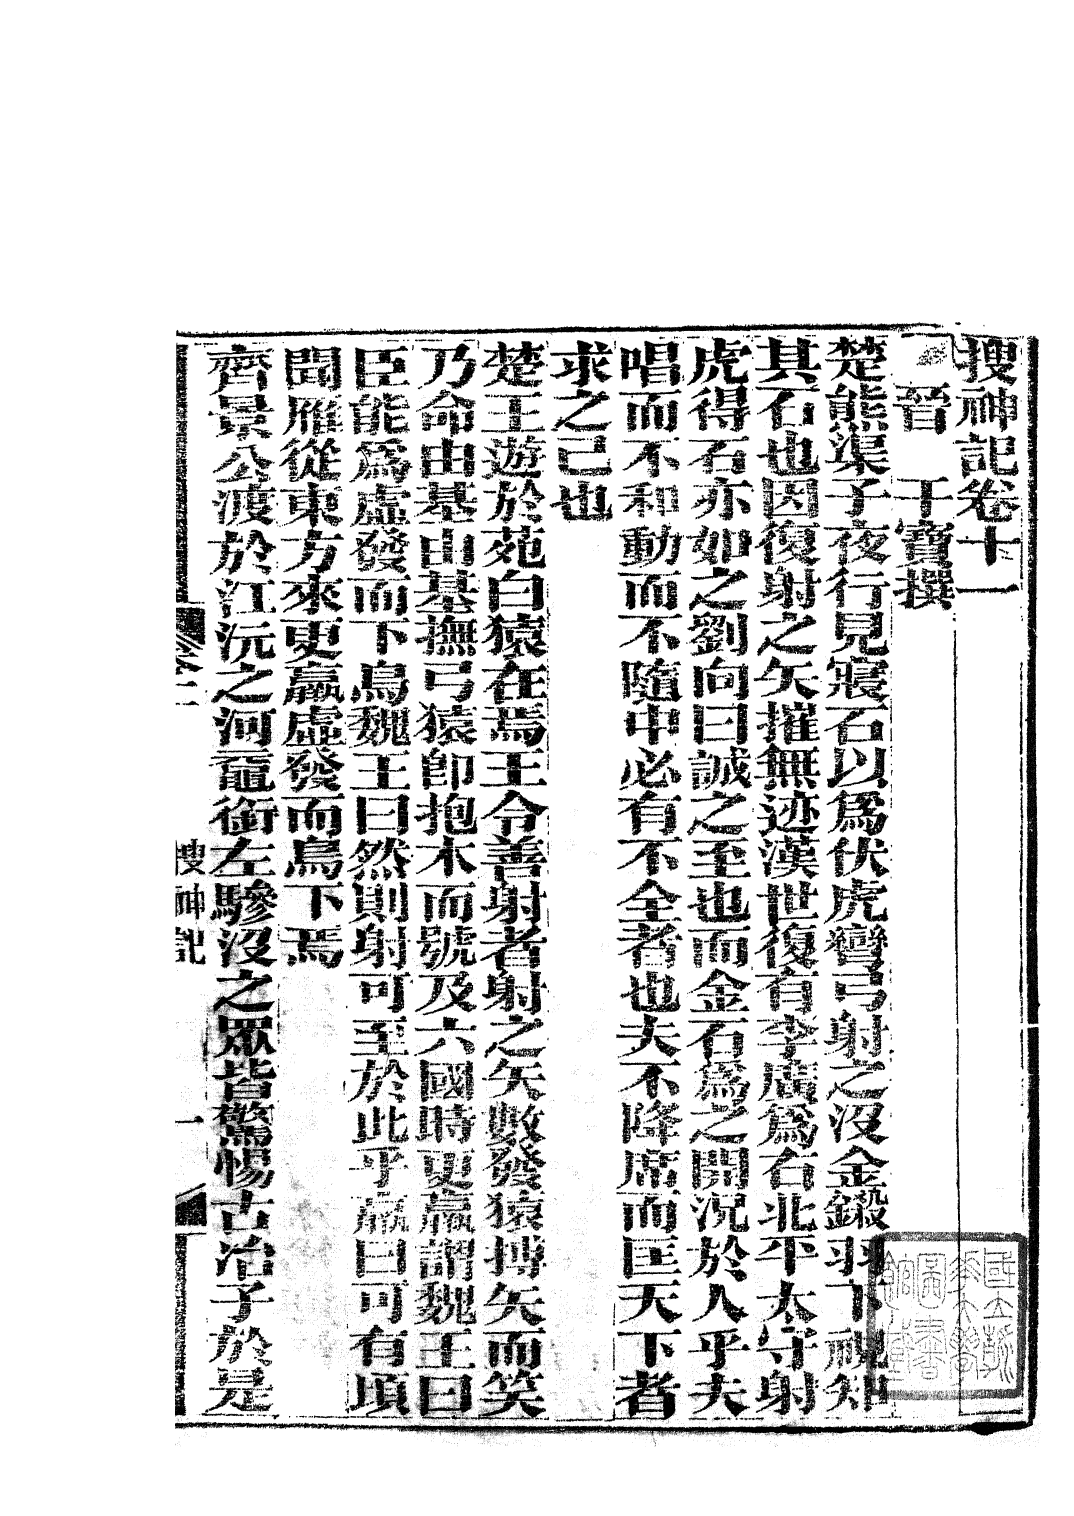 搜神記卷十一
晉　干寶撰
楚熊渠子夜行見寢石以爲伏虎彎弓射之沒金鎩羽下視知
其石也因復射之矢摧無迹漢世復有李廣爲右北平太守射
虎得石亦如之劉向曰誠之至也而金石爲之開況於人乎夫
唱而不和動而不隨中必有不全者也夫不降席而匡天下者
求之己也
楚王遊於苑白猿在焉王令善射者射之矢數發猿搏矢而笑
乃命由基由基撫弓猿卽抱木而號及六國時更羸謂魏王曰
臣能爲虛發而下鳥魏王曰然則射可至於此乎羸曰可有頃
聞雁從東方來更羸虛發而鳥下焉
齊景公渡於江沅之河黿銜左驂沒之眾皆驚惕古冶子於是
搜神記
一